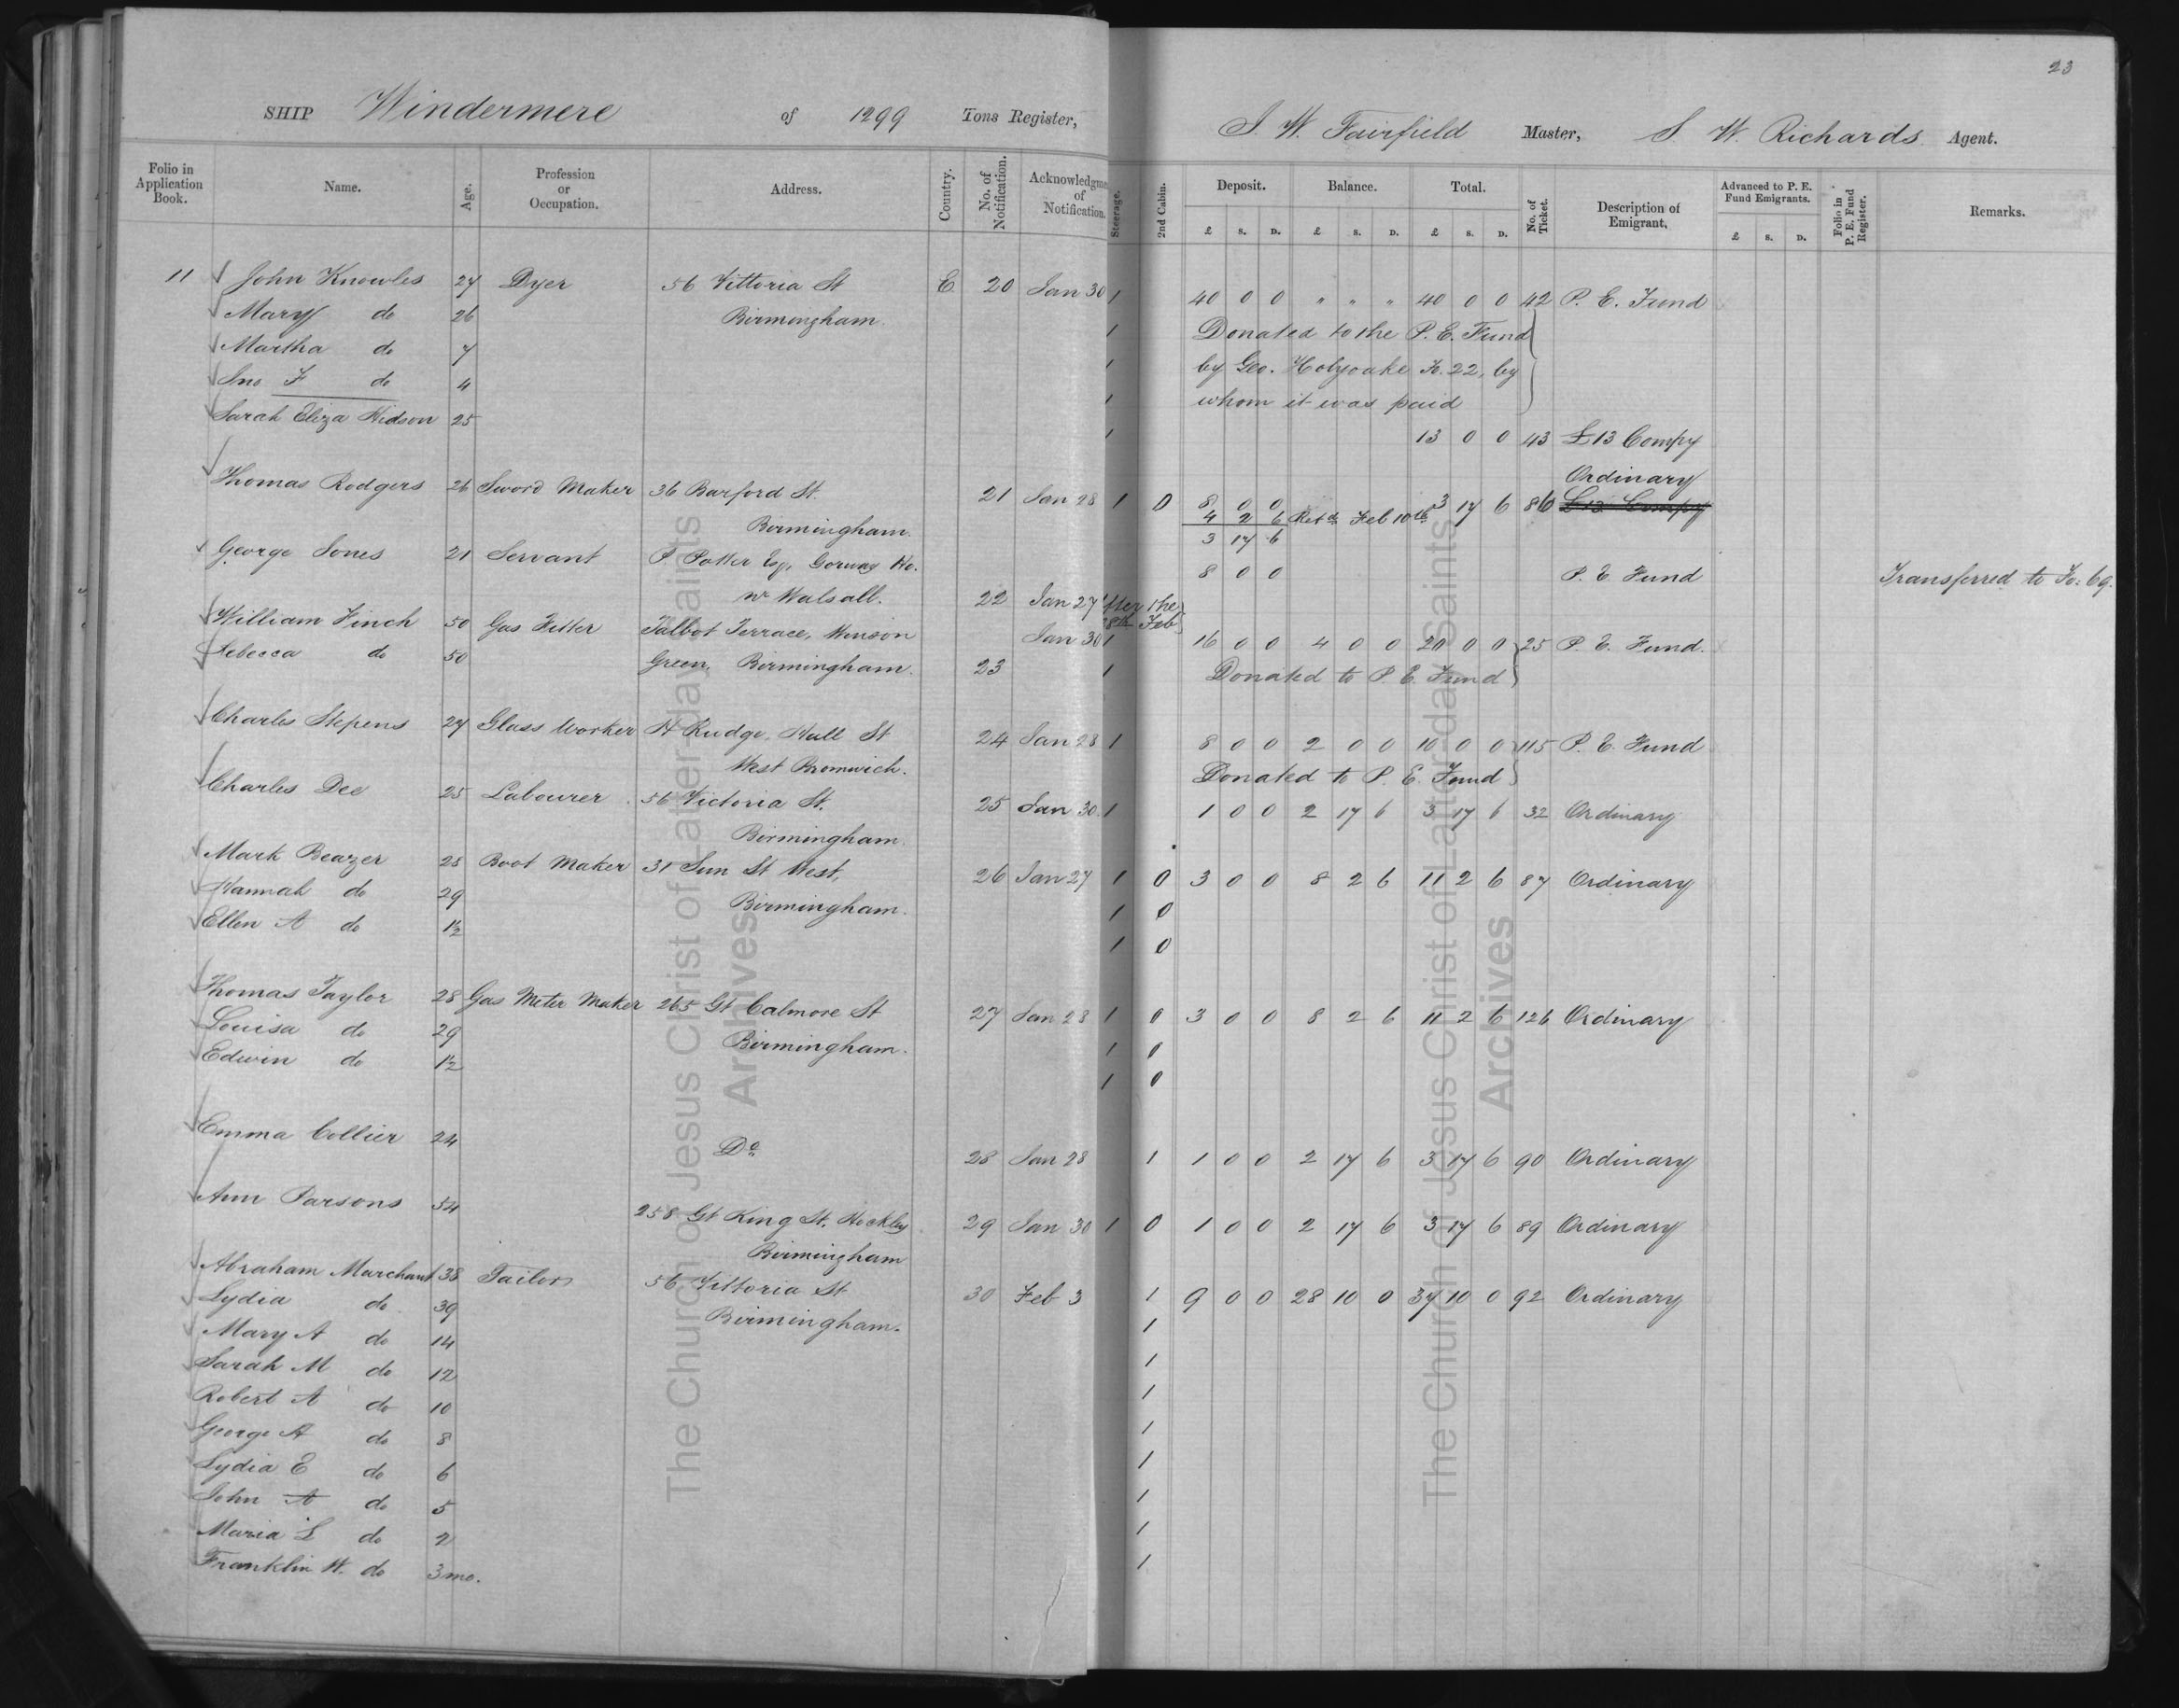 23
SHIP Windermere of 1299 Tons Register, J. W. Fairfield Master, S W. Richards Agent.
Folio in Application Book. Name. Age. Profession or Occupation. Address. Country. No. of Notification. Acknowledgme of Notification. Steerage. 2nd Cabin. Deposit. Balance. Total. No. of Ticket. Description of Emigrant. Advanced to P. E. Fund Emigrants. Folio in P. E. Fund Register. Remarks.
£ s. D. £ s. D. £ s. D. £ s. D.
11 John Knowles 27 Dyer 56 Vittoria St E 20 Jan 30 1 40 0 0 " " " 40 0 0 42 P. E. Fund
Mary do 26 Birmingham 1 Donated to the P. E. Fund
Martha do 7 1 by Geo. Holyoake Fo. 22, by
Jno F do 4 1 whom it was paid
Sarah Eliza Hidson 25 1 13 0 0 43 £13 Compy
Ordinary
Thomas Rodgers 26 Sword Maker 36 Barford St. 21 Jan 28 1 0 8 0 0 3 17 6 86 £13 Compy
Birmingham 4 2 6 Retd. Feb 10th
3 17 6
George Jones 21 Servant P. Potter Esq, Gorway Ho. 8 0 0 P. E. Fund Transferred to Fo: 69.
nr Walsall. 22 Jan 27 After the 8th Feb
William Finch 50 Gas Fitter Talbot Terrace, Winson Jan 30 1 16 0 0 4 0 0 20 0 0 25 P. E. Fund.
Rebecca do 50 Green, Birmingham. 23 1 Donated to P. E. Fund
Charles Stepens 27 Glass Worker H Rudge, Hall St 24 Jan 28 1 8 0 0 2 0 0 10 0 0 115 P. E. Fund
West Bromwich. Donated to P. E. Fund
Charles Dee 25 Labourer 56 Victoria St. 25 Jan 30. 1 1 0 0 2 17 6 3 17 6 32 Ordinary
Birmingham
Mark Beazer 28 Boot Maker 31 Sun St West, 26 Jan 27 1 0 3 0 0 8 2 6 11 2 6 87 Ordinary
Hannah do 29 Birmingham. 1 0
Ellen A do 1½ 1 0
Thomas Taylor 28 Gas Meter Maker 265 Gt Calmore St 27 Jan 28 1 0 3 0 0 8 2 6 11 2 6 126 Ordinary
Louisa do 29 Birmingham. 1 0
Edwin do 1½ 1 0
Emma Collier 24 Do 28 Jan 28 1 1 0 0 2 17 6 3 17 6 90 Ordinary
Ann Parsons 54 258 Gt King St. Hockley 29 Jan 30 1 0 1 0 0 2 17 6 3 17 6 89 Ordinary
Birmingham
Abraham Marchant 38 Tailor 56 Vittoria St 30 Feb 3 1 9 0 0 28 10 0 37 10 0 92 Ordinary
Lydia do 39 Birmingham. 1
Mary A do 14 1
Sarah M do 12 1
Robert A do 10 1
George A do 8 1
Lydia E do 6 1
John A do 5 1
Maria L do 2 1
Franklin W. do 3 mo.
The Church of Jesus Christ of Latter-day Saints
Archives
The Church of Jesus Christ of Latter-day Saints
Archives